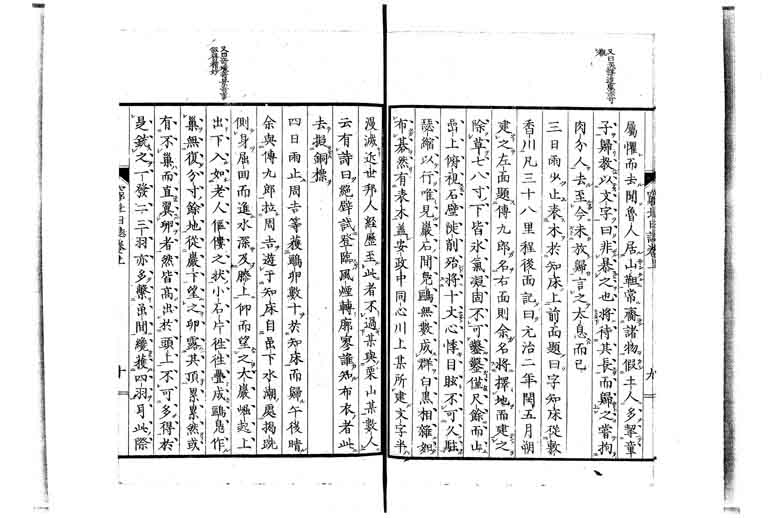 又曰
屬懼而去聞魯人居山鞋常齋諸物假土人多挈童
子歸教以文字曰非綦之也將待其長而歸之嘗拘
肉分人去至今未放歸言之太息而已
三日雨少止表木於知床上前面題曰字知床從
香川凡三十八里程後面記曰元治二年閏五月朔
建之左面題傅九郎名右面則余名將擇地而建之
除草七八寸下皆氷氣凝固不可鑿鑿僅尺餘而山
上俯視石壁陡削殆將十丈心悸目眩不可久駐
瑟縮以行唯見巖石間鳬鷗無數成群白黑相雜如
布棊然有表木蓋安政中同心川上某所建文字半
又曰
漫滅近世邦人經歷至此者不過某與栗山某數人
云有詩曰絕壁試登臨風煙轉廓寥誰知布衣者此
去擬銅標
四日雨止周吉等獲鷗卵數十於知床而歸午後晴
余與傅九郎拉周吉遊于知床自下水潮處揭跣
側身屈曲而進水深及膝上仰而望之大巖崛起上
出下入如老人傴僂之狀小石片往往疊成鷗鳬作
巢無復分寸餘地從巖下望之卵露其頂累累然或
有不巢而直翼卵者然皆高出於頭上不可多得於
是銃之丁發二三羽亦多繫間纔獲四羽月此際
十